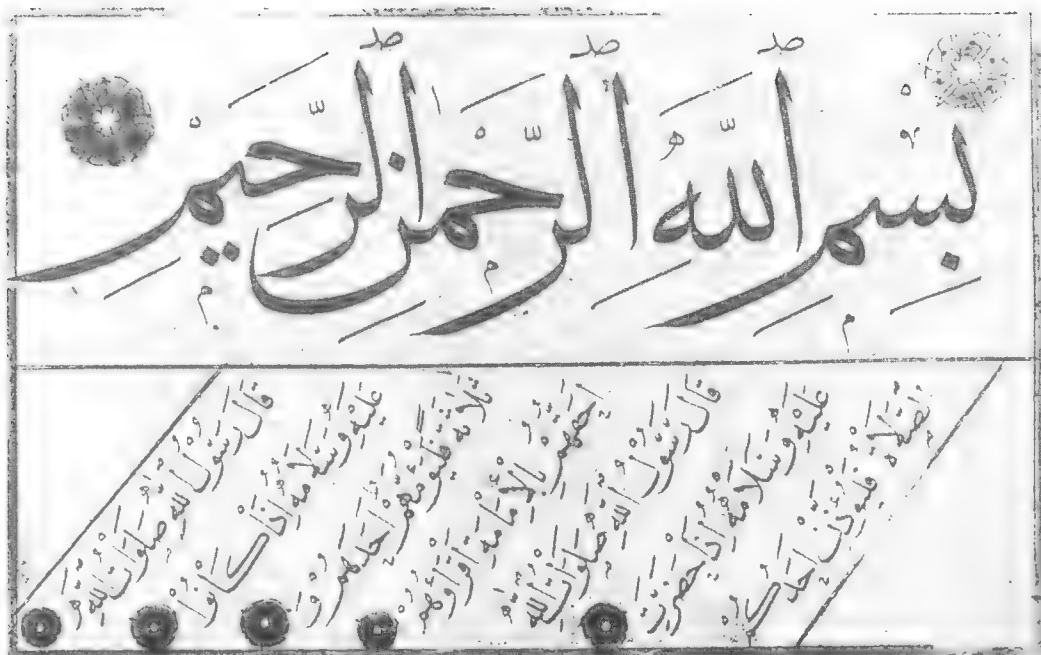 بِسْمِ اللَّهِ الرَّحْمٰنِ الرَّحِيْمِ
قَالَ رَسُوْلُ اللهِ صَلَوَاتُ اللهِ
عَلَيْهِ وَسَلَامُهُ إِذَا كَانُوا
ثَلَاثَةً فَلْيَؤُمَّهُمْ أَحَدُهُمْ وَ
أَحَقُّهُمْ بِالْإِمَامَةِ أَقْرَأُوهُمْ
قَالَ رَسُوْلُ اللهِ صَلَوَاتُ اللهِ
عَلَيْهِ وَسَلَامُهُ إِذَا حَضَرَتِ
الصَّلَاةُ فَلْيُؤَذِّنْ أَحَدُكُمْ